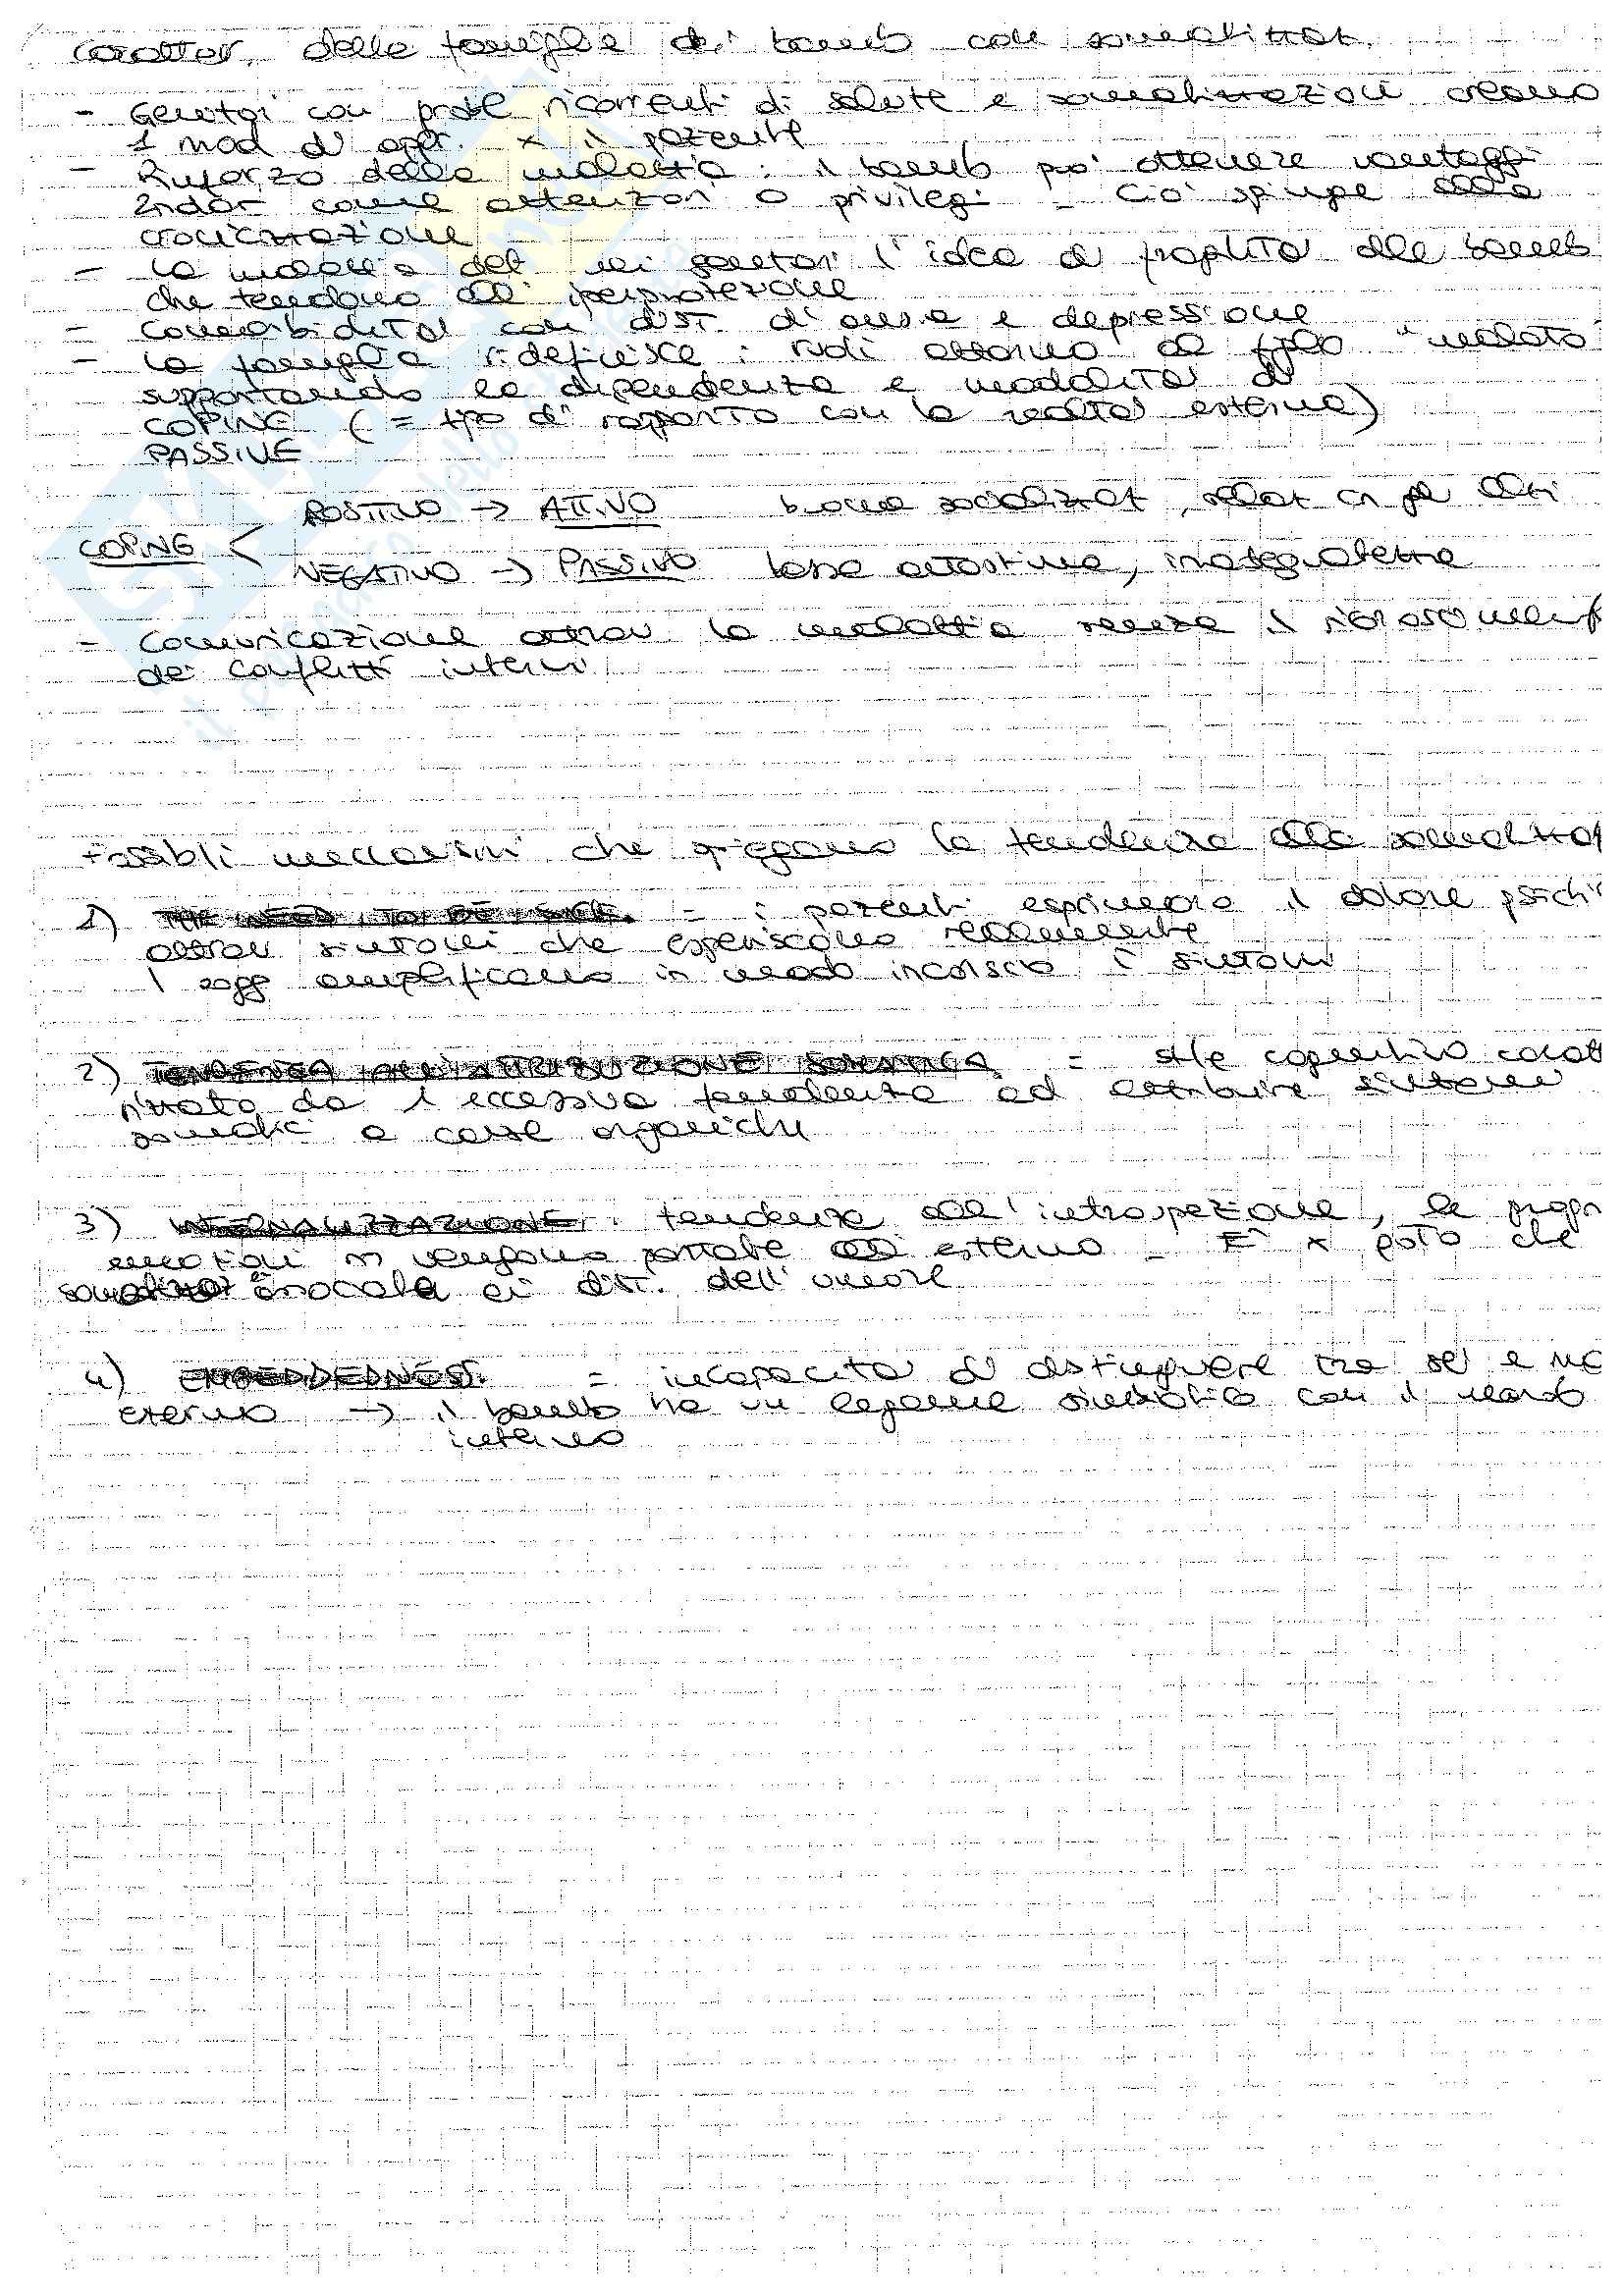 caratter. delle famiglie dei bamb con somatizzaz.
- Genitori con probl ricorrenti di salute e somatizzazioni creano
1 mod di appr. x il paziente
- Rinforzo della malattia: il bamb può ottenere vantaggi
2ndari come attenzioni o privilegi - Ciò spinge alla
cronicizzazione
- La malattia det nei genitori l'idea di fragilità del bamb
che tendono all'iperprotezione
- Comorbidità con dist. d'ansia e depressione
- La famiglia ridefinisce i ruoli attorno al figlio "malato"
supportando la dipendenza e modalità di
COPING (= tipo di rapporto con la realtà esterna)
PASSIVE
POSITIVO → ATTIVO buona socializzaz, relaz cn gli altri
COPING <
NEGATIVO → PASSIVO bassa autostima, inadeguatezza
- Comunicazione attrav la malattia senza il riconosciment
dei conflitti interni
Possibili meccanismi che spiegano la tendenza alla somatizzaz
1) THE NEED TO BE SICK. = i pazienti esprimono il dolore psichi
attrav sintomi che esperiscono realmente
I sogg amplificano in modo inconscio i sintomi
2) TENDENZA ALL'ATTRIBUZIONE SOMATICA = stile cognitivo caratt
rizzato da 1 eccessiva tendenza ad attribuire sintomi
somatici a cause organiche
3) INTERNALIZZAZIONE: tendenza all'introspezione, le propri
emozioni nn vengono portate all'esterno - E' x che
somatizzaz è ai dist. dell'umore
4) EMBEDDEDNESS. = incapacità di distinguere tra sé e mo
esterno → il bambino ha un legame simbiotico con il mondo
interno